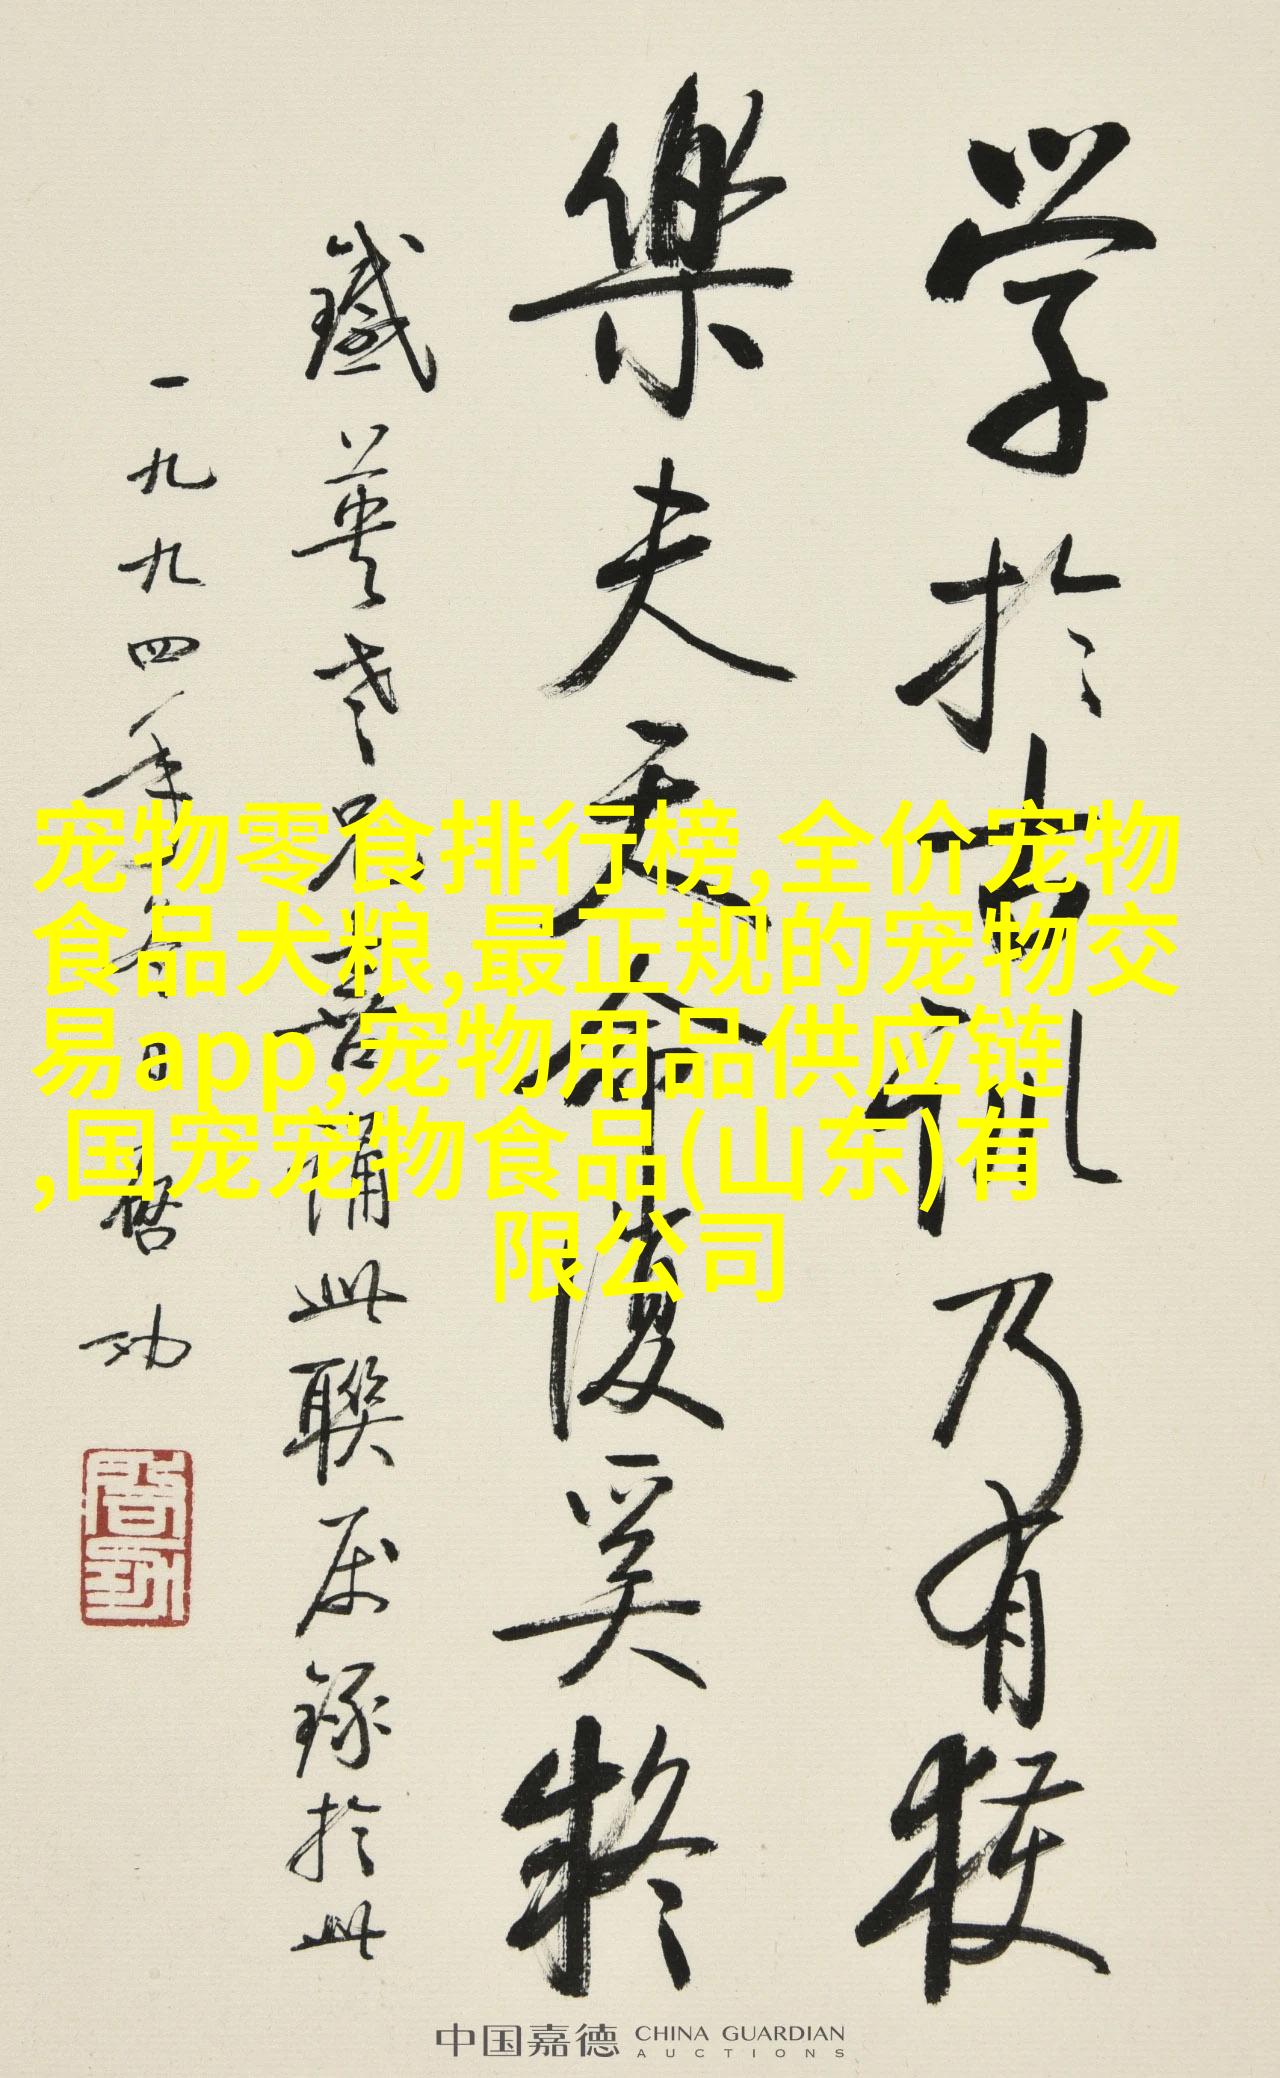 学於古訓乃有獲
樂夫天命復奚疑
鐵英老兄喜誦此聯屬錄於此
一九九四年冬日 啓功
啓功
宠物零食排行榜,全价宠物
食品犬粮,最正规的宠物交
易app,宠物用品供应链
,国宠宠物食品(山东)有
限公司
中国嘉德 CHINA GUARDIAN
AUCTIONS